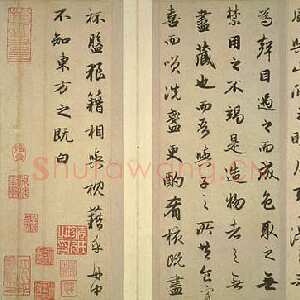 為聲目遇之而成色取之無
禁用之不竭是造物者之無
盡藏也而吾與子之所共食客
喜而笑洗盞更酌肴核既盡
杯盤狼籍相與枕藉乎舟中
不知東方之既白
Shufawang.CN